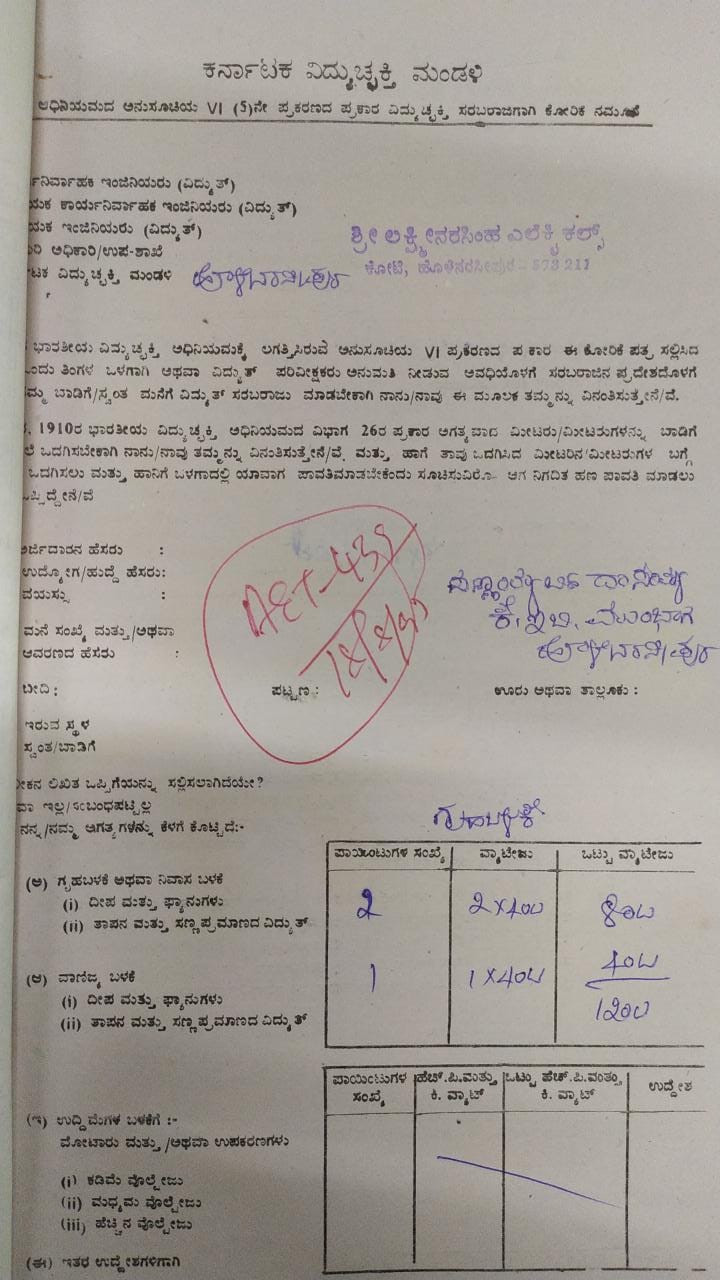 ಕರ್ನಾಟಕ ವಿದ್ಯುಚ್ಛಕ್ತಿ ಮಂಡಳಿ
ಅಧಿನಿಯಮದ ಅನುಸೂಚಿಯ VI (5)ನೇ ಪ್ರಕರಣದ ಪ್ರಕಾರ ವಿದ್ಯುಚ್ಛಕ್ತಿ ಸರಬರಾಜಿಗಾಗಿ ಕೋರಿಕೆ ನಮೂನೆ
ರ್ಯನಿರ್ವಾಹಕ ಇಂಜಿನಿಯರು (ವಿದ್ಯುತ್)
ಯಕ ಕಾರ್ಯನಿರ್ವಾಹಕ ಇಂಜಿನಿಯರು (ವಿದ್ಯುತ್)
ಯಕ ಇಂಜಿನಿಯರು (ವಿದ್ಯುತ್)
ರಿ ಅಧಿಕಾರಿ/ಉಪ-ಶಾಖೆ
ಟಕ ವಿದ್ಯುಚ್ಛಕ್ತಿ ಮಂಡಳಿ
ಶ್ರೀ ಲಕ್ಷ್ಮೀನರಸಿಂಹ ಎಲೆಕ್ಟ್ರಿಕಲ್ಸ್
ಕೋಟೆ, ಹೊಳೆನರಸೀಪುರ - 573 211
ಭಾರತೀಯ ವಿದ್ಯುಚ್ಛಕ್ತಿ ಅಧಿನಿಯಮಕ್ಕೆ ಲಗತ್ತಿಸಿರುವ ಅನುಸೂಚಿಯ VI ಪ್ರಕರಣದ ಪ್ರಕಾರ ಈ ಕೋರಿಕೆ ಪತ್ರ ಸಲ್ಲಿಸಿದ
ಒಂದು ತಿಂಗಳ ಒಳಗಾಗಿ ಅಥವಾ ವಿದ್ಯುತ್ ಪರಿವೀಕ್ಷಕರು ಅನುಮತಿ ನೀಡುವ ಅವಧಿಯೊಳಗೆ ಸರಬರಾಜಿನ ಪ್ರದೇಶದೊಳಗೆ
ಮ್ಮ ಬಾಡಿಗೆ/ಸ್ವಂತ ಮನೆಗೆ ವಿದ್ಯುತ್ ಸರಬರಾಜು ಮಾಡಬೇಕಾಗಿ ನಾನು/ನಾವು ಈ ಮೂಲಕ ತಮ್ಮನ್ನು ವಿನಂತಿಸುತ್ತೇನೆ/ವೆ.
1910ರ ಭಾರತೀಯ ವಿದ್ಯುಚ್ಛಕ್ತಿ ಅಧಿನಿಯಮದ ವಿಭಾಗ 26ರ ಪ್ರಕಾರ ಅಗತ್ಯವಾದ ಮೀಟರು/ಮೀಟರುಗಳನ್ನು ಬಾಡಿಗೆ
ಲೆ ಒದಗಿಸಬೇಕಾಗಿ ನಾನು/ನಾವು ತಮ್ಮನ್ನು ವಿನಂತಿಸುತ್ತೇನೆ/ವೆ. ಮತ್ತು ಹಾಗೆ ತಾವು ಒದಗಿಸಿದ ಮೀಟರಿನ/ಮೀಟರುಗಳ ಬಗ್ಗೆ
ಒದಗಿಸಲು ಮತ್ತು ಹಾನಿಗೆ ಒಳಗಾದಲ್ಲಿ ಯಾವಾಗ ಪಾವತಿಮಾಡಬೇಕೆಂದು ಸೂಚಿಸುವಿರೊ ಆಗ ನಿಗದಿತ ಹಣ ಪಾವತಿ ಮಾಡಲು
ಪ್ಪಿದ್ದೇನೆ/ವೆ
ಅರ್ಜಿದಾರನ ಹೆಸರು :
ಉದ್ಯೋಗ/ಹುದ್ದೆ ಹೆಸರು:
ವಯಸ್ಸು :
AET-439
ಕೆ.ಇ.ಬಿ.
ಮನೆ ಸಂಖ್ಯೆ ಮತ್ತು/ಅಥವಾ
ಆವರಣದ ಹೆಸರು :
ಬೀದಿ : ಪಟ್ಟಣ : ಊರು ಅಥವಾ ತಾಲ್ಲೂಕು :
ಇರುವ ಸ್ಥಳ
ಸ್ವಂತ/ಬಾಡಿಗೆ
ೀಕನ ಲಿಖಿತ ಒಪ್ಪಿಗೆಯನ್ನು ಸಲ್ಲಿಸಲಾಗಿದೆಯೇ?
ವಾ ಇಲ್ಲ/ಸಂಬಂಧಪಟ್ಟಿಲ್ಲ
ನನ್ನ/ನಮ್ಮ ಅಗತ್ಯಗಳನ್ನು ಕೆಳಗೆ ಕೊಟ್ಟಿದೆ:-
ಗೃಹಬಳಕೆ
ಪಾಯಿಂಟುಗಳ ಸಂಖ್ಯೆ ವ್ಯಾಟೇಜು ಒಟ್ಟು ವ್ಯಾಟೇಜು
(ಅ) ಗೃಹಬಳಕೆ ಅಥವಾ ನಿವಾಸ ಬಳಕೆ
(i) ದೀಪ ಮತ್ತು ಫ್ಯಾನುಗಳು 2 2×40W 80W
(ii) ತಾಪನ ಮತ್ತು ಸಣ್ಣ ಪ್ರಮಾಣದ ವಿದ್ಯುತ್
(ಆ) ವಾಣಿಜ್ಯ ಬಳಕೆ 1 1×40W 40W
(i) ದೀಪ ಮತ್ತು ಫ್ಯಾನುಗಳು 120W
(ii) ತಾಪನ ಮತ್ತು ಸಣ್ಣ ಪ್ರಮಾಣದ ವಿದ್ಯುತ್
ಪಾಯಿಂಟುಗಳ ಹೆಚ್.ಪಿ.ಮತ್ತು ಒಟ್ಟು ಹೆಚ್.ಪಿ.ಮತ್ತು ಉದ್ದೇಶ
ಸಂಖ್ಯೆ ಕಿ. ವ್ಯಾಟ್ ಕಿ. ವ್ಯಾಟ್
(ಇ) ಉದ್ದಿಮೆಗಳ ಬಳಕೆಗೆ :-
ಮೋಟಾರು ಮತ್ತು/ಅಥವಾ ಉಪಕರಣಗಳು
(i) ಕಡಿಮೆ ವೋಲ್ಟೇಜು
(ii) ಮಧ್ಯಮ ವೋಲ್ಟೇಜು
(iii) ಹೆಚ್ಚಿನ ವೋಲ್ಟೇಜು
(ಈ) ಇತರ ಉದ್ದೇಶಗಳಿಗಾಗಿ